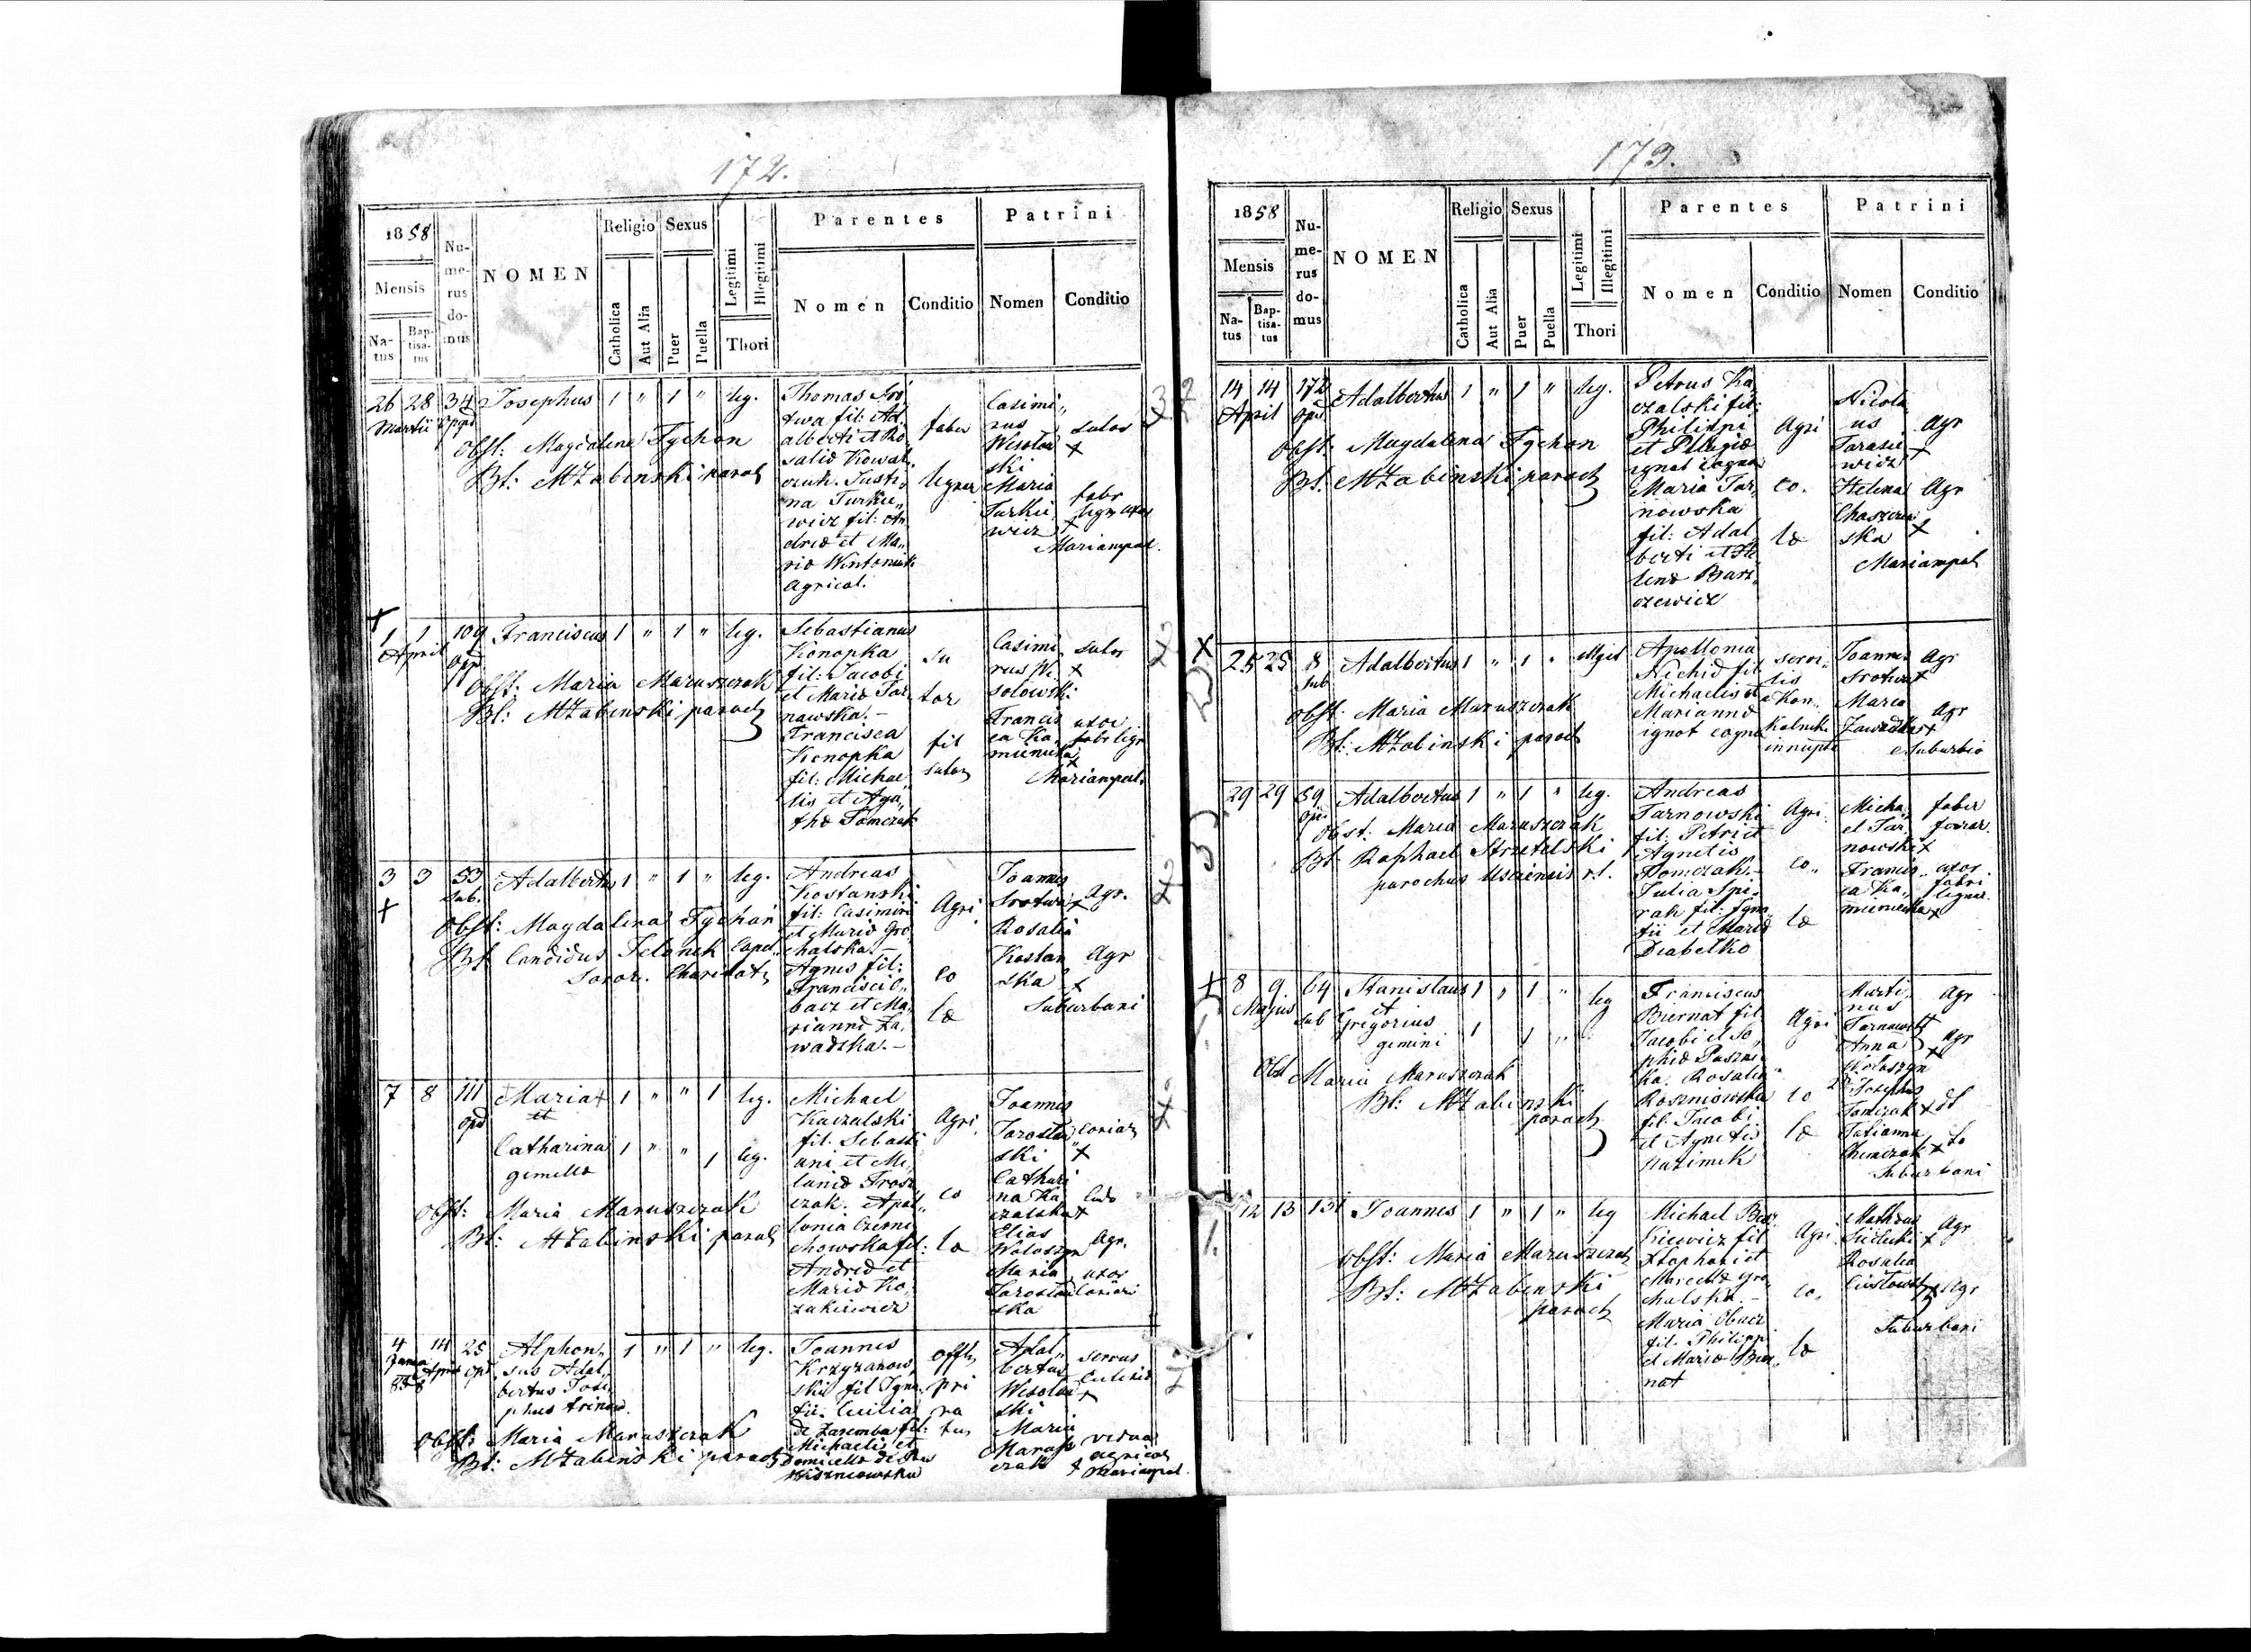 172.
1858
Mensis
Na-
tus
Bap-
tisa-
tus
Nu-
me-
rus
do-
mus
NOMEN
Religio
Catholica
Aut Alia
Sexus
Puer
Puella
Legitimi
Illegitimi
Thori
Parentes
Nomen
Conditio
Patrini
Nomen
Conditio
26 28 34 Josephus 1 " 1 " leg.
Martii
Obst: Magdalena Tychon
Bt: MZabinski paroch
Thomas Sro
twa fil: Ad
alberti et Ro
salia Kowal
czuk. Justi
na Turkie
wicz fil: An
drea et Ma
ria Wintoniak
Agricol.
faber
lignar
Casimi
rus
Wesołow
ski
Maria
Turkie
wicz
sutor
+
fabr
lign uxor
+
Mariampol.
+
1 1 109 Franciscus 1 " 1 " leg.
April opp
Obst: Maria Maruszczak
Bt: MZabinski paroch
Sebastianus
Konopka
fil: Jacobi
et Maria Tar
nawska. –
Francisca
Konopka
fil: Michae
lis et Aga
tha Tomczak
Su
tor
fil
sutor
Casimi
rus W.
sołowski
Francis
ca Ka
mienicka
sutor
+
uxor
fabr lign
+
Mariampol.
3 3 53 Adalbertus 1 " 1 " leg.
Sub.
+
Obst: Magdalena Tychon
Bt Candidus Jelonek Capel
Soror. Charitat
Andreas
Kostanski
fil: Casimiri
et Maria Gro
chalska. –
Agnes fil:
Francisci O
bacz et Ma
rianna Za
wadzka. –
Agri
co
la
Joannes
Srotwa
Rosalia
Kostan
ska
+ Agr.
Agr
+
Suburbani
7 8 111 Maria+ 1 " " 1 leg.
opd et
Catharina 1 " " 1 leg.
gemella
Obst: Maria Maruszczak
Bt: MZabinski paroch
Michael
Kaczalski
fil: Sebasti
ani et Me
lania Trosz
czak. Apol
lonia Czerni
chowska fil:
Andrea et
Maria Ko
zakiewicz
Agri
co
la
Joannes
Jarosław
ski
Cathari
na Ka
czalska
Elias
Wołoszyn
Maria
Jarosław
ska
coriar
+
+
Agr.
uxor
Coriari
4 14 25 Alphon
Janua April opd. sus Adal
858 bertus Jose
phus trinom. 1 " 1 " leg.
Obst: Maria Maruszczak
Bt: MZabinski paroch
Joannes
Krzyzanow
ski fil Igna
tii. Cecilia
de Zaremba fil:
Michaelis et
Domicella de
Wiszniowska
Offi
pri
va
tus
Adal
bertus
Wesołow
ski
Maria
Marusz
czak
servus
+
vidua
agricol
+ Mariampol.
173.
1858
Mensis
Na-
tus
Bap-
tisa-
tus
Nu-
me-
rus
do-
mus
NOMEN
Religio
Catholica
Aut Alia
Sexus
Puer
Puella
Legitimi
Illegitimi
Thori
Parentes
Nomen
Conditio
Patrini
Nomen
Conditio
14 14 172 Adalbertus 1 " 1 " leg.
April opd
Obst: Magdalena Tychon
Bt: MZabinski paroch
Petrus Ka
czalski fil:
Philippi
et Pelagia
ignot cogno
Maria Tar
nowska
fil: Adal
berti et He
lena Barz
czewicz
Agri
co.
la
Nicola
us
Tarasie
wicz
Helena
ska
Agr
+
Agr
+
Mariampol
X
25 25 8 Adalbertus 1 " 1 " illegit
Sub
Obst: Maria Maruszczak
Bt: MZabinski paroch
Apollonia
fil
Michaelis et
Marianna
ignot cogno
innupta
Joannes
Srotwa
Maria
Zawadzka
Agr
+
Agr
+
e Suburbio
29 29 59 Adalbertus 1 " 1 " leg.
opd
Obst: Maria Maruszczak
Bt: Raphael Strzetelski
parochus Usciensis r.l.
Andreas
Tarnowski
fil: Petri et
Agnetis
Tomczak. –
Julia Spi
rak fil: Igna
tii et Maria
Diabełko
Agri
co
la
Micha
el Tar
nowski
Francis
ca Ka
mienicka
faber
ferrar.
+
uxor
fabri
lignar.
+
+
8 9 64 Stanislaus 1 " 1 " leg
Majus sub et
Gregorius 1 1 "
gemini
Obst Maria Maruszczak
Bt: MZabinski
paroch
Franciscus
Biernat fil
Jacobi et So
phia Paszni
ka. Rosalia
Rozniowska
fil: Jacobi
et Agnetis
Pazimek
Agri
co
la
Marti
nus
Tarnawski
Anna
Wołoszyn
2 Josephus
Tomczak
Tatianna
Agr
+
Agr
+
+ dt
+ to
Suburbani
12 13 131 Joannes 1 " 1 " leg
Obst: Maria Maruszczak
Bt: MZabinski
paroch
Michael Ber
kiewicz fil
Stephani et
Marcella Gro
chalska. –
Maria Obacz
fil. Philippi
et Maria Bier
nat
Agri
co.
la
Mathaus
Sielecki
Rosalia
+ Agr
+ Agr
Suburbani